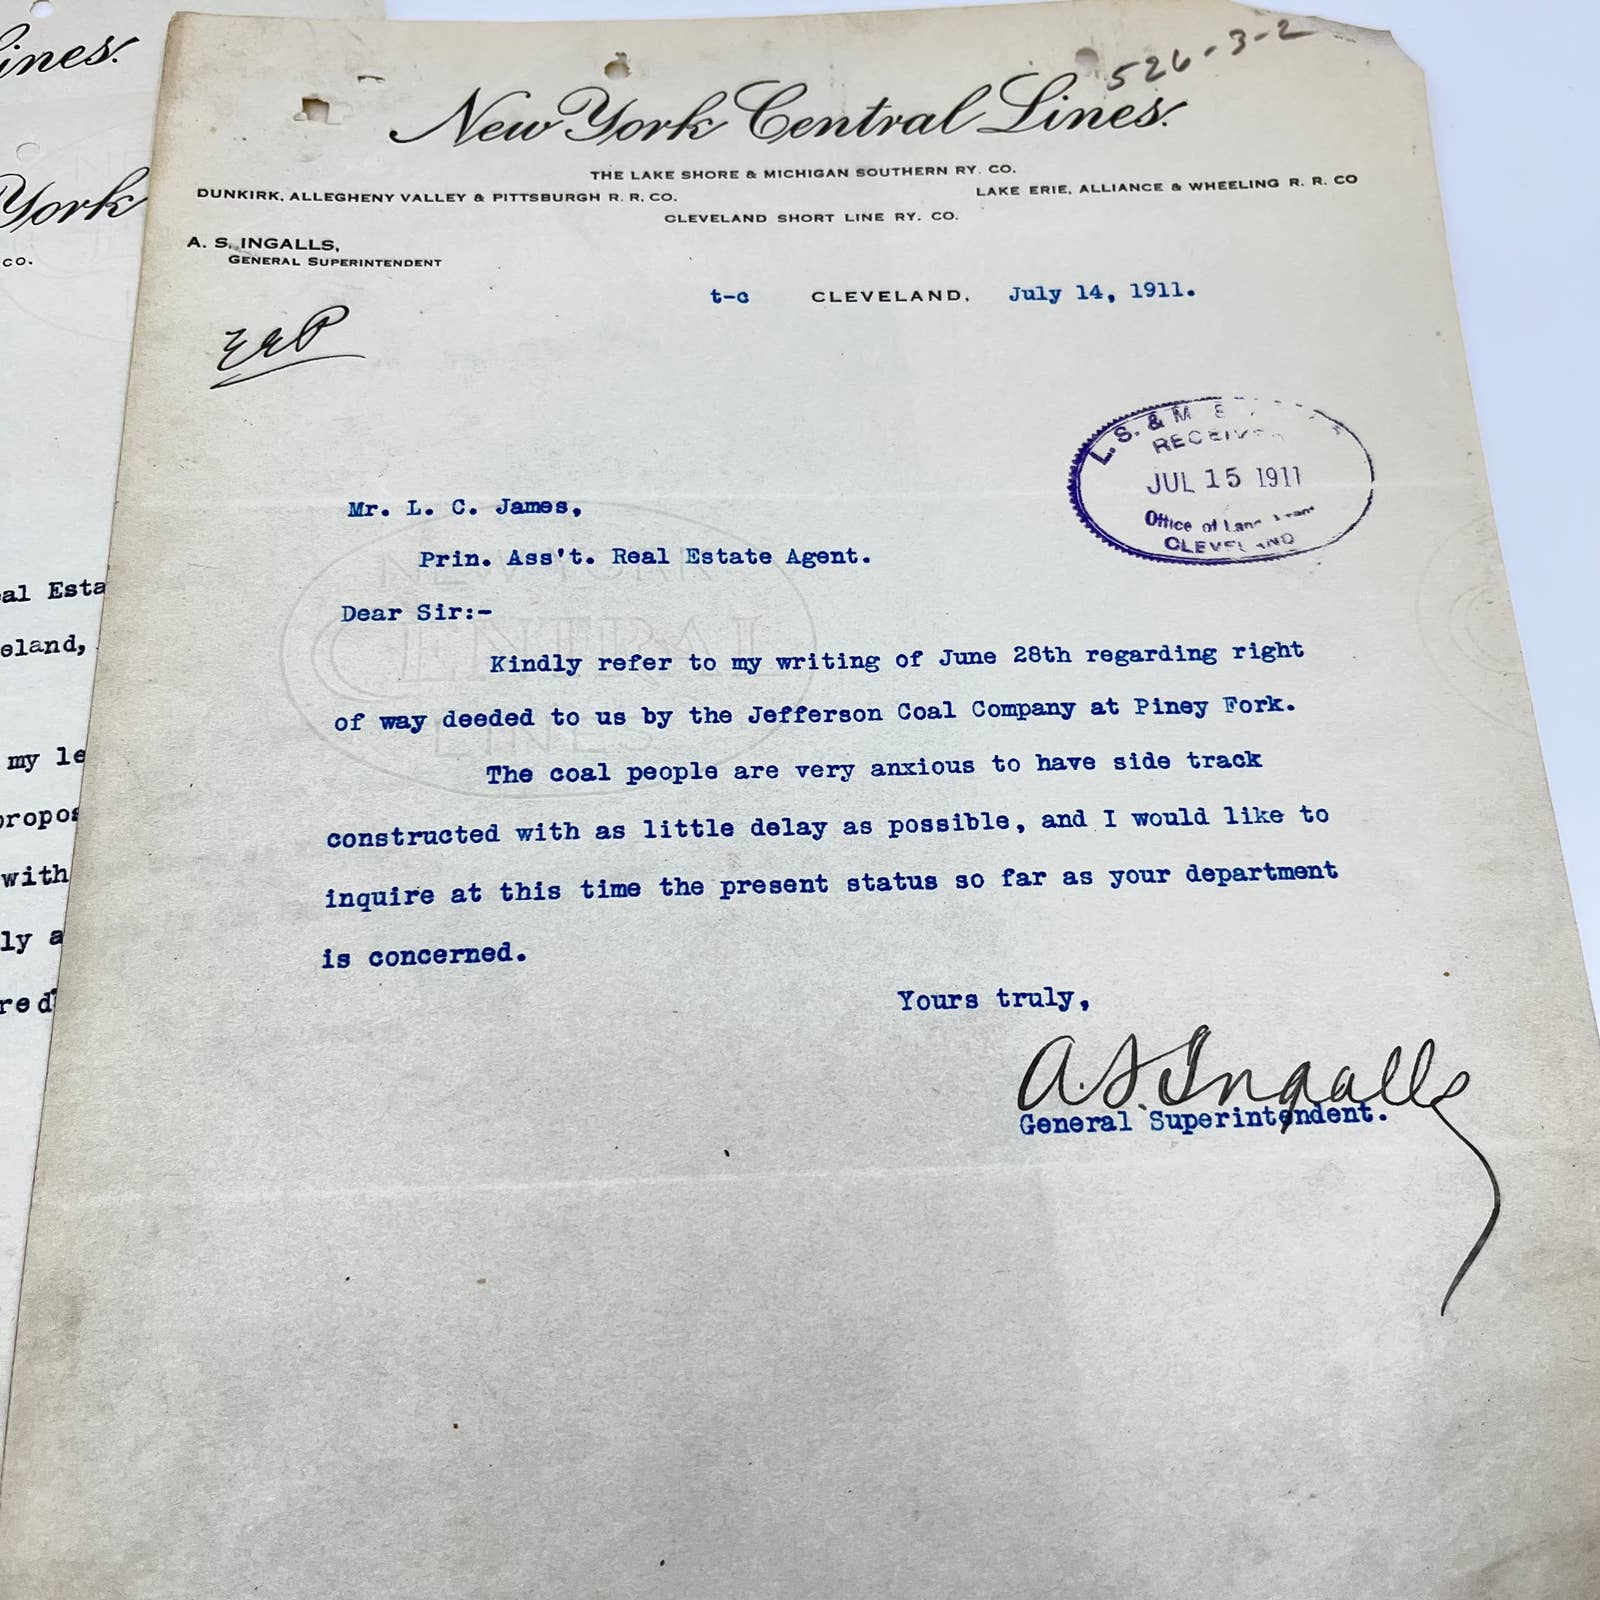 526-3-2
New York Central Lines.
THE LAKE SHORE & MICHIGAN SOUTHERN RY. CO.
DUNKIRK, ALLEGHENY VALLEY & PITTSBURGH R. R. CO.
LAKE ERIE, ALLIANCE & WHEELING R. R. CO
CLEVELAND SHORT LINE RY. CO.
A. S. INGALLS,
GENERAL SUPERINTENDENT
t-c CLEVELAND, July 14, 1911.
L. S. & M. S.
RECEIVED
JUL 15 1911
Office of
CLEVELAND
Mr. L. C. James,
Prin. Ass't. Real Estate Agent.
Dear Sir:-
Kindly refer to my writing of June 28th regarding right
of way deeded to us by the Jefferson Coal Company at Piney Fork.
The coal people are very anxious to have side track
constructed with as little delay as possible, and I would like to
inquire at this time the present status so far as your department
is concerned.
Yours truly,
A. S. Ingalls
General Superintendent.
NEW YORK
CENTRAL
LINES
ines.
York
CO.
al Esta
eland,
my le
propos
with
ly a
red